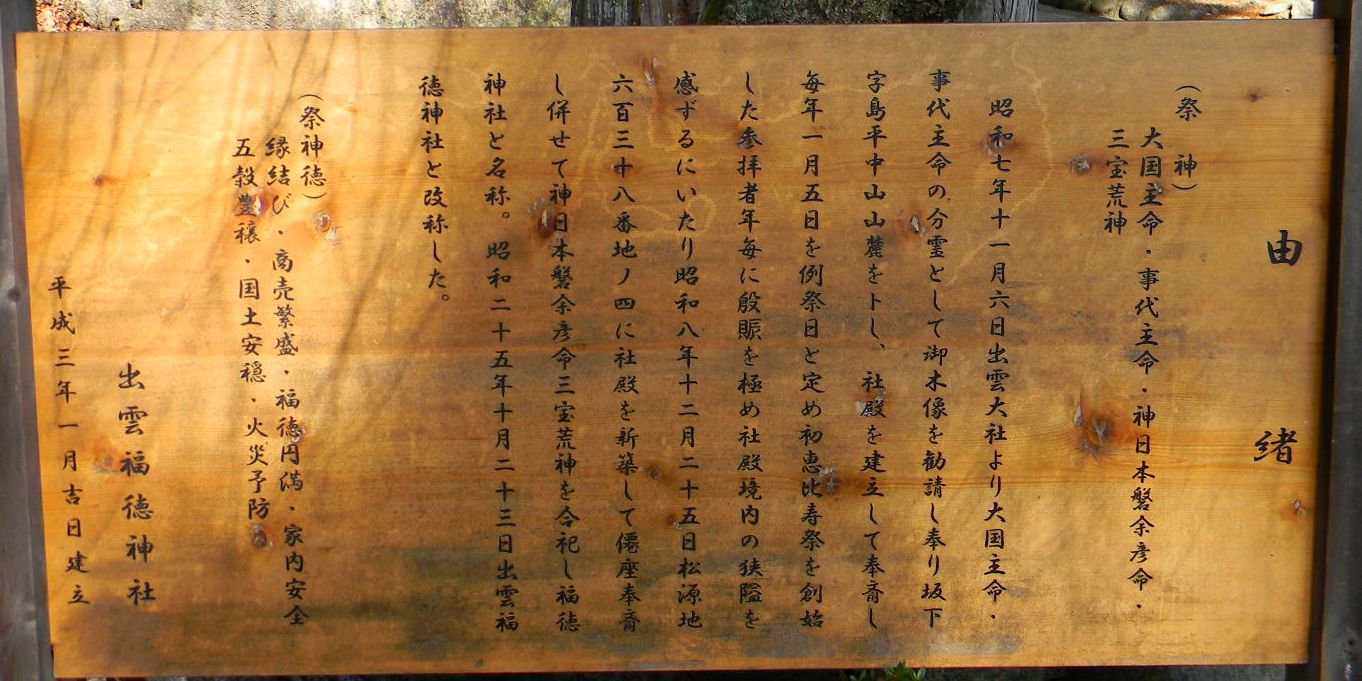 由緒
（祭　神）
大国主命・事代主命・神日本磐余彦命・
三宝荒神
昭和七年十一月六日出雲大社より大国主命・
事代主命の分霊として御木像を勧請し奉り坂下
字島平中山山麓をト し、社殿を建立して奉斎し
毎年一月五日を例祭日と定め初恵比寿祭を創始
した参拝者年毎に殷賑を極め社殿境内の狭隘を
感ずるにいたり昭和八年十二月二十五日松源地
六百三十八番地ノ四に社殿を新築して僊座奉斎
し併せて神日本磐余彦命三宝荒神を合祀し福徳
神社と名称。昭和二十五年十月二十三日出雲福
徳神社と改称した。
（祭神徳）
縁結び・商売繁盛・福徳円満・家内安全
五穀豊穣・国土安穏・火災予防
出雲福徳神社
平成三年一月吉日建立